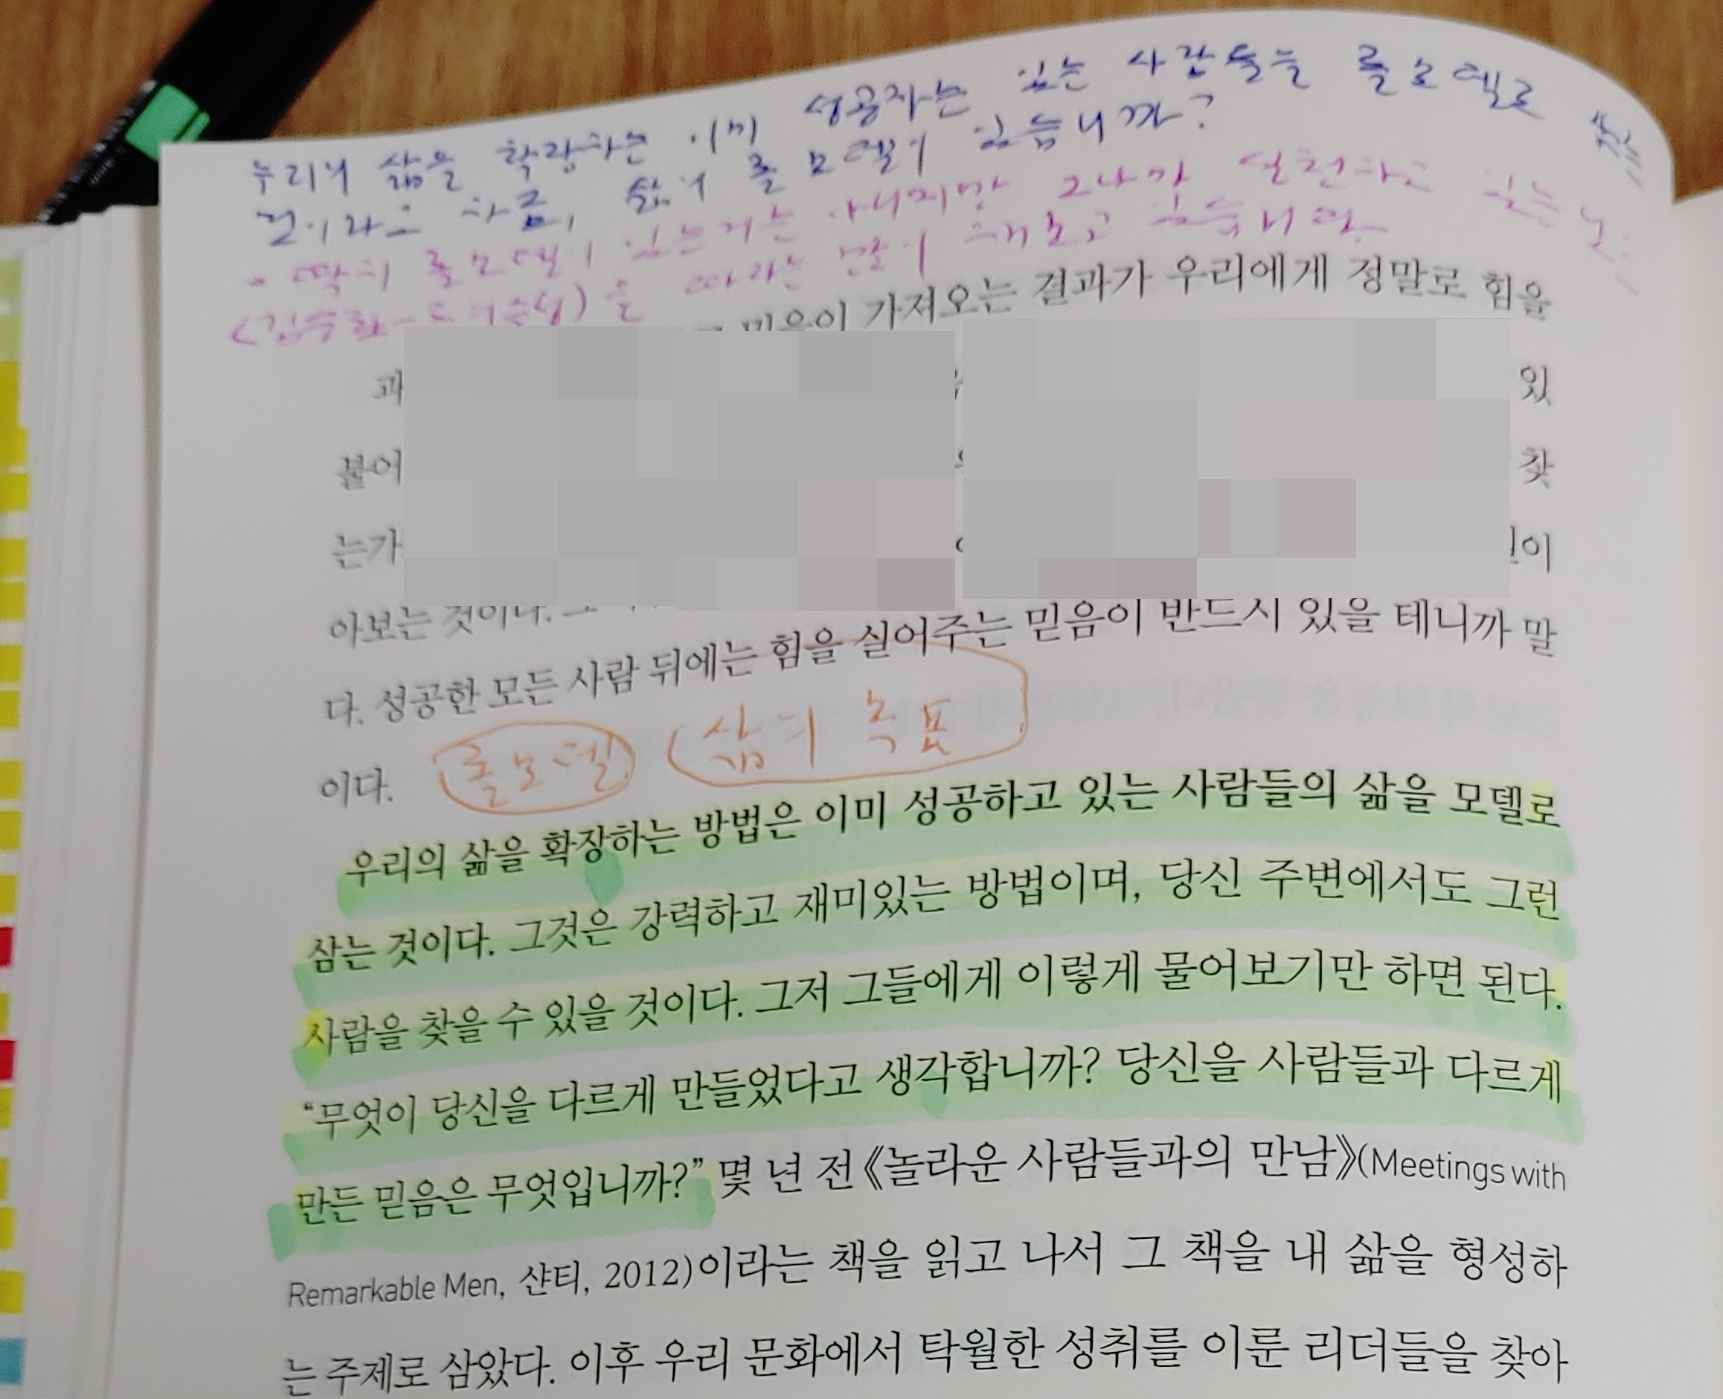 우리의 삶을 확장하는 이미 성공자는 있는 사람들을 롤모델로 찾는
것이라고 하죠, 삶의 롤모델이 있습니까?
딱히 롤모델이 있는거는 아니지만 그나마 실천하고 있는
을 따라는 많이 해보고 있습니다.
믿음이 가져오는 결과가 우리에게 정말로 힘을
과 있
불어 찾
는가
아보는 것이다.
다. 성공한 모든 사람 뒤에는 힘을 실어주는 믿음이 반드시 있을 테니까 말
이다. 롤모델 삶의 목표
우리의 삶을 확장하는 방법은 이미 성공하고 있는 사람들의 삶을 모델로
삼는 것이다. 그것은 강력하고 재미있는 방법이며, 당신 주변에서도 그런
사람을 찾을 수 있을 것이다. 그저 그들에게 이렇게 물어보기만 하면 된다.
“무엇이 당신을 다르게 만들었다고 생각합니까? 당신을 사람들과 다르게
만든 믿음은 무엇입니까?” 몇 년 전 《놀라운 사람들과의 만남》(Meetings with
Remarkable Men, 샨티, 2012)이라는 책을 읽고 나서 그 책을 내 삶을 형성하
는 주제로 삼았다. 이후 우리 문화에서 탁월한 성취를 이룬 리더들을 찾아